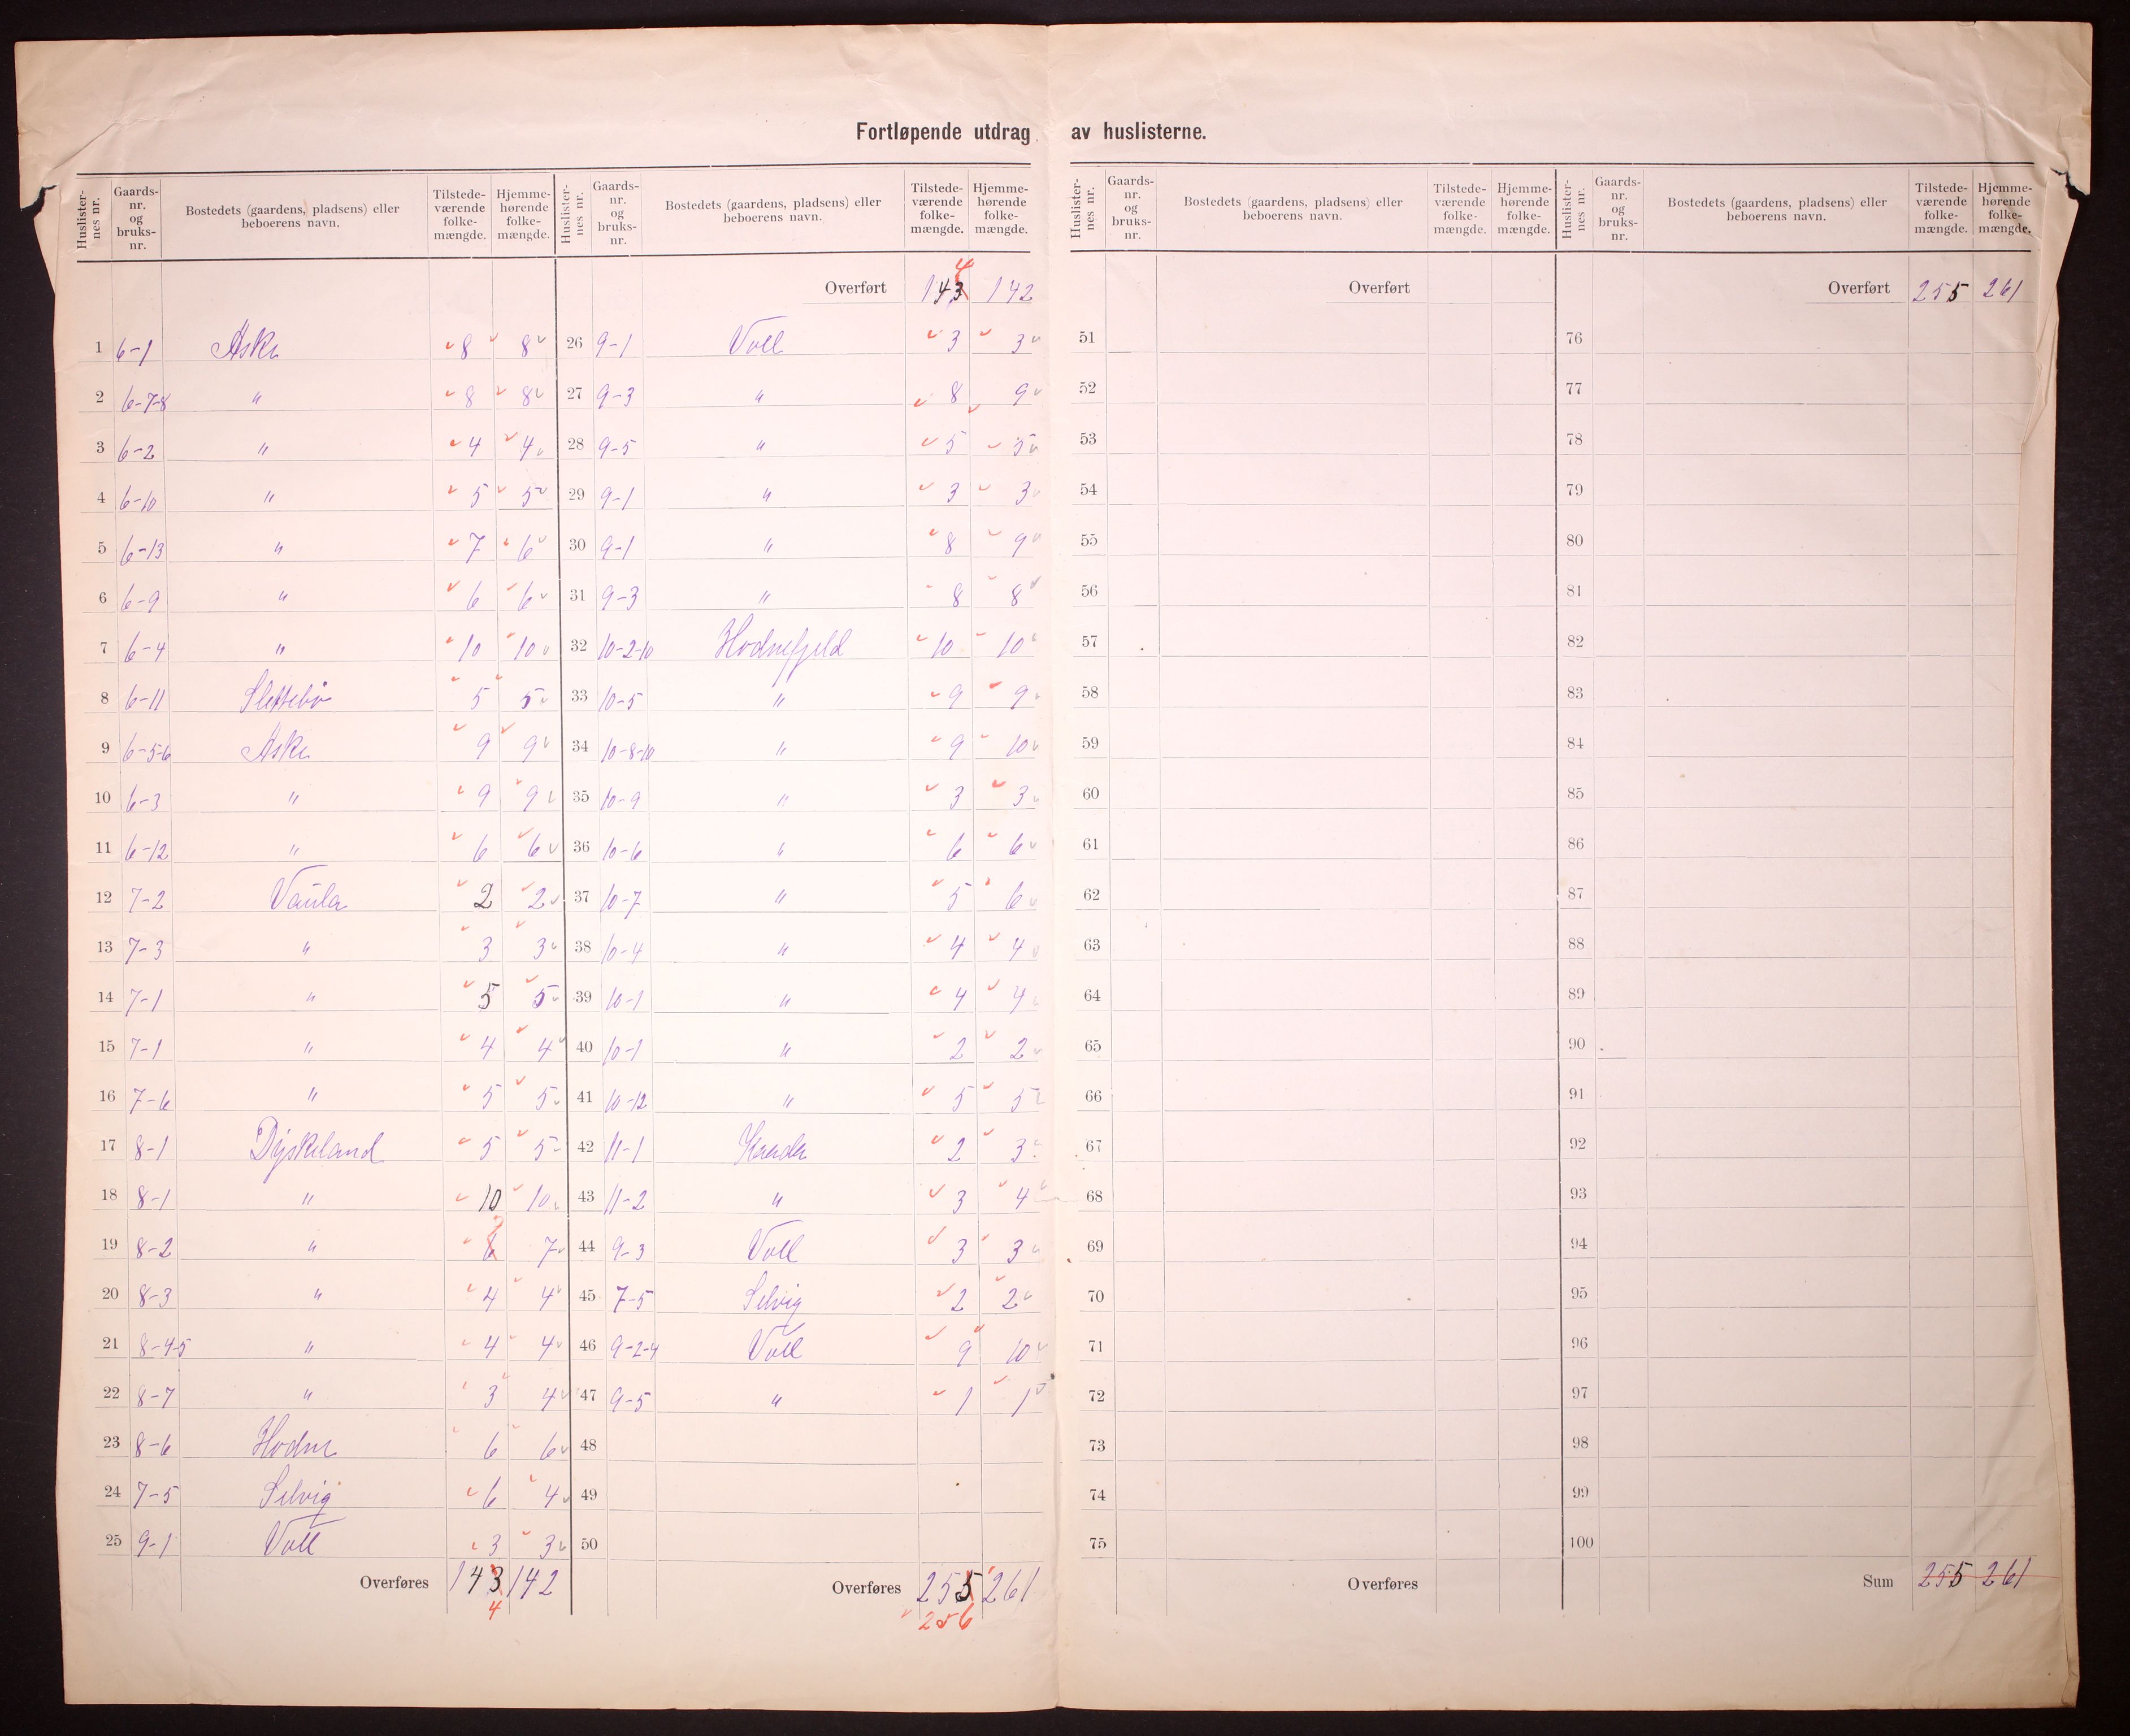 Fortløpende utdrag av huslisterne.
Huslister-nes nr. | Gaards-nr. og bruks-nr. | Bostedets (gaardens, pladsens) eller beboerens navn. | Tilstede-værende folke-mængde. | Hjemme-hørende folke-mængde.
1 6-1 Aske 8 8
2 6-7-8 " 8 8
3 6-2 " 4 4
4 6-10 " 5 5
5 6-13 " 7 6
6 6-9 " 6 6
7 6-4 " 10 10
8 6-11 Slettebø 5 5
9 6-5-6 Aske 9 9
10 6-3 " 9 9
11 6-12 " 6 6
12 7-2 Vaula 2 2
13 7-3 " 3 3
14 7-1 " 5 5
15 7-1 " 4 4
16 7-6 " 5 5
17 8-1 Dyskeland 5 5
18 8-1 " 10 10
19 8-2 " 6 7
20 8-3 " 4 4
21 8-4-5 " 4 4
22 8-7 " 3 4
23 8-6 Hodne 6 6
24 7-5 Selvig 6 4
25 9-1 Voll 3 3
Overføres 143 142
4
Huslister-nes nr. | Gaards-nr. og bruks-nr. | Bostedets (gaardens, pladsens) eller beboerens navn. | Tilstede-værende folke-mængde. | Hjemme-hørende folke-mængde.
4
Overført 143 142
26 9-1 Voll 3 3
27 9-3 " 8 9
28 9-5 " 5 5
29 9-1 " 3 3
30 9-1 " 8 9
31 9-3 " 8 8
32 10-2-10 Hodnefjeld 10 10
33 10-5 " 9 9
34 10-8-10 " 9 10
35 10-9 " 3 3
36 10-6 " 6 6
37 10-7 " 5 6
38 10-4 " 4 4
39 10-1 " 4 4
40 10-1 " 2 2
41 10-12 " 5 5
42 11-1 2 3
43 11-2 " 3 4
44 9-3 Voll 3 3
45 7-5 Selvig 2 2
46 9-2-4 Voll 9 10
47 9-5 " 1 1
48
49
50
Overføres 255 261
256
Huslister-nes nr. | Gaards-nr. og bruks-nr. | Bostedets (gaardens, pladsens) eller beboerens navn. | Tilstede-værende folke-mængde. | Hjemme-hørende folke-mængde.
Overført
51
52
53
54
55
56
57
58
59
60
61
62
63
64
65
66
67
68
69
70
71
72
73
74
75
Overføres
Huslister-nes nr. | Gaards-nr. og bruks-nr. | Bostedets (gaardens, pladsens) eller beboerens navn. | Tilstede-værende folke-mængde. | Hjemme-hørende folke-mængde.
Overført 255 261
76
77
78
79
80
81
82
83
84
85
86
87
88
89
90
91
92
93
94
95
96
97
98
99
100
Sum 255 261